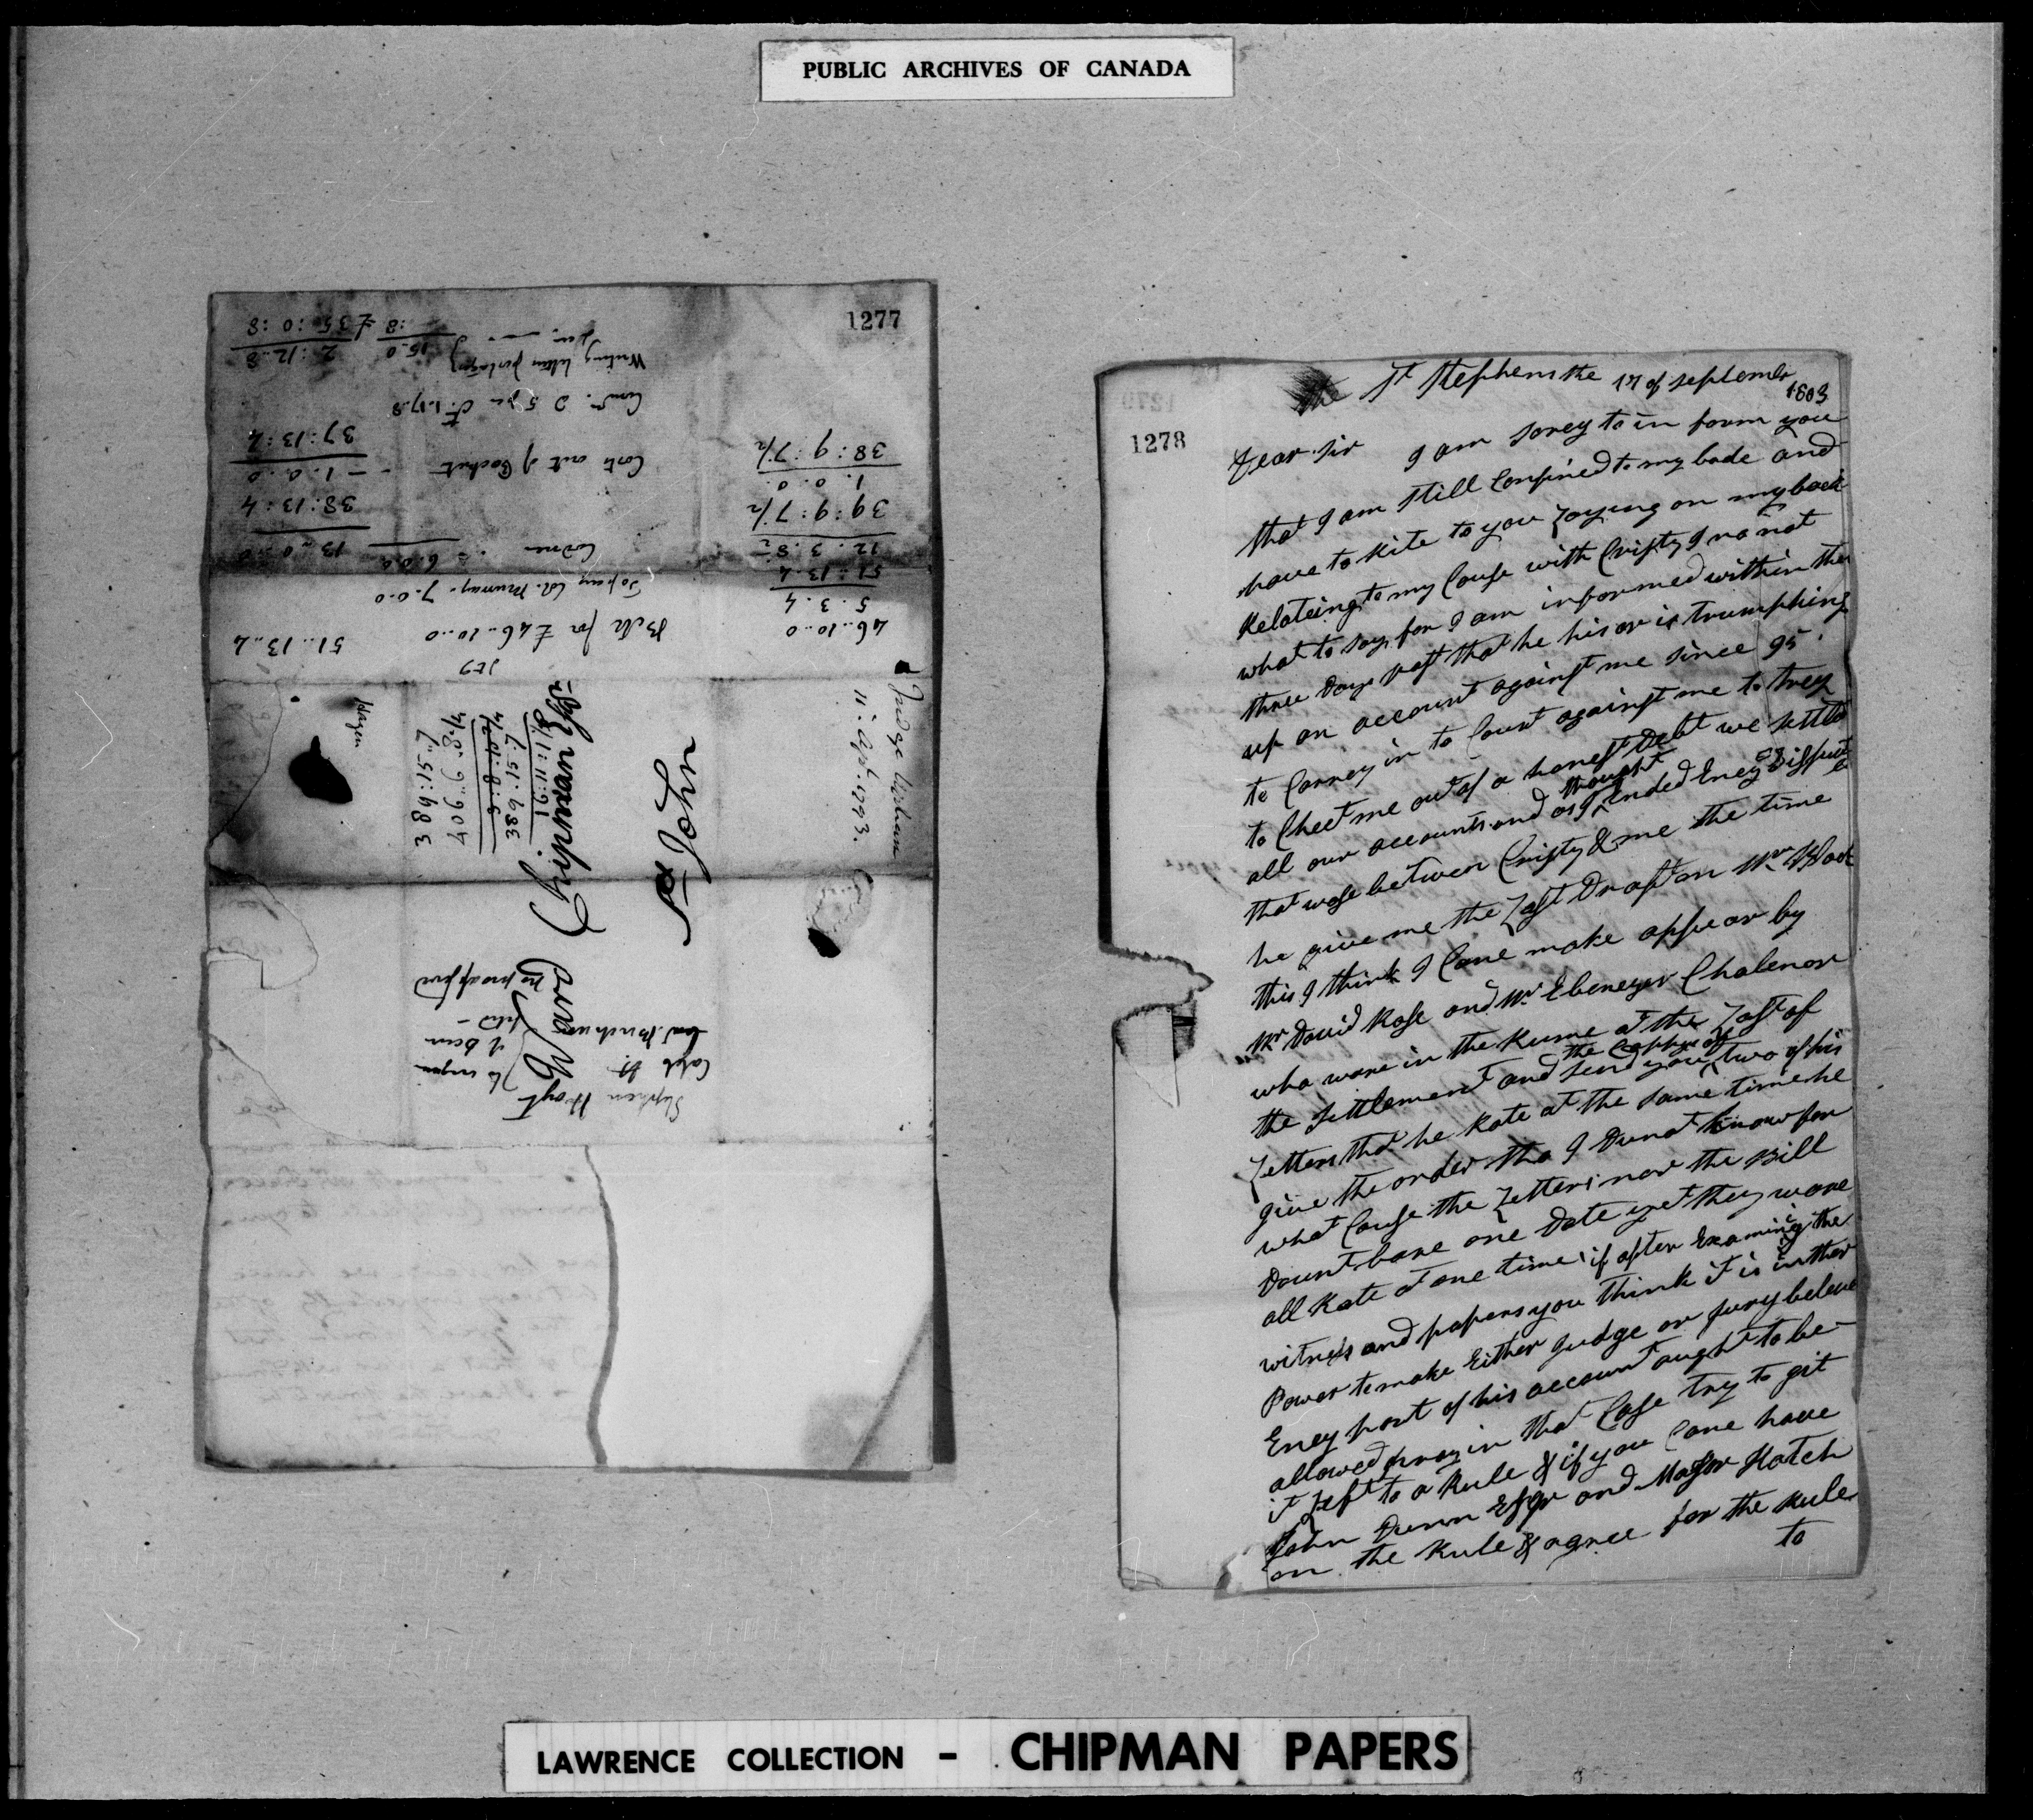 PUBLIC ARCHIVES OF CANADA
1277
51..13..4
Bill for £46..10..0
46..10..0
5. 3. 4
51: 13. 4
12. 3. 8 1/2
39: 9: 7 1/2
1. 0. 0.
38: 9: 7 1/2
Col. Murray. 7. 0. 0
6. 0. 0
13. 0. 0
38: 13: 4
Costs out of Pocket - 1. 0. 0
37: 13: 4
Writing letters
15. 0
2: 12..8
:8
£35: 0: 8
Judge Upham
11: Apl: 1793.
St John
Ward Chipman Esqr.
384:15:7
407
384:15:7
Hazen
Stephen Hoyt
1278
the St Stephens the 17 of September
1803
Dear Sir I am sorey to in form you
that I am still Confined to my bade and
have to Rite to you Laying on my back
Relateing to my Cause with Cristy I no not
what to say for I am informed within thes
three Days past that he his or is trumphing
up an account against me since 95
to Carrey in to Court against me to trey
to Cheet me out of a honest Debt we settld
thought
all our accounts and as I Ended Eney Dispute
that wase between Cristy & me the time
he give me the Last Draft on Mr Wood
this I think I Cane make appear by
Mr David Rose and Mr Ebenezer Chalenor
who ware in the Rume at the Last of
the Coppy of
the Settlement and send you two of his
Letters that he Rate at the same time he
give the order tho I Dunot know for
what Cause the Letters nor the Bill
Dount bare one Date yet they ware
all Rate at one time if after Examining the
witness and papers you think it is in ther
Power to make Either Judge or Jury beleve
Eney part of his account aught to be
allowed pray in that Case try to git
it Left to a Rule & if you Cane have
John Dunn Esqr and Major Hatch
on the Rule & agree for the Rule
to
LAWRENCE COLLECTION - CHIPMAN PAPERS